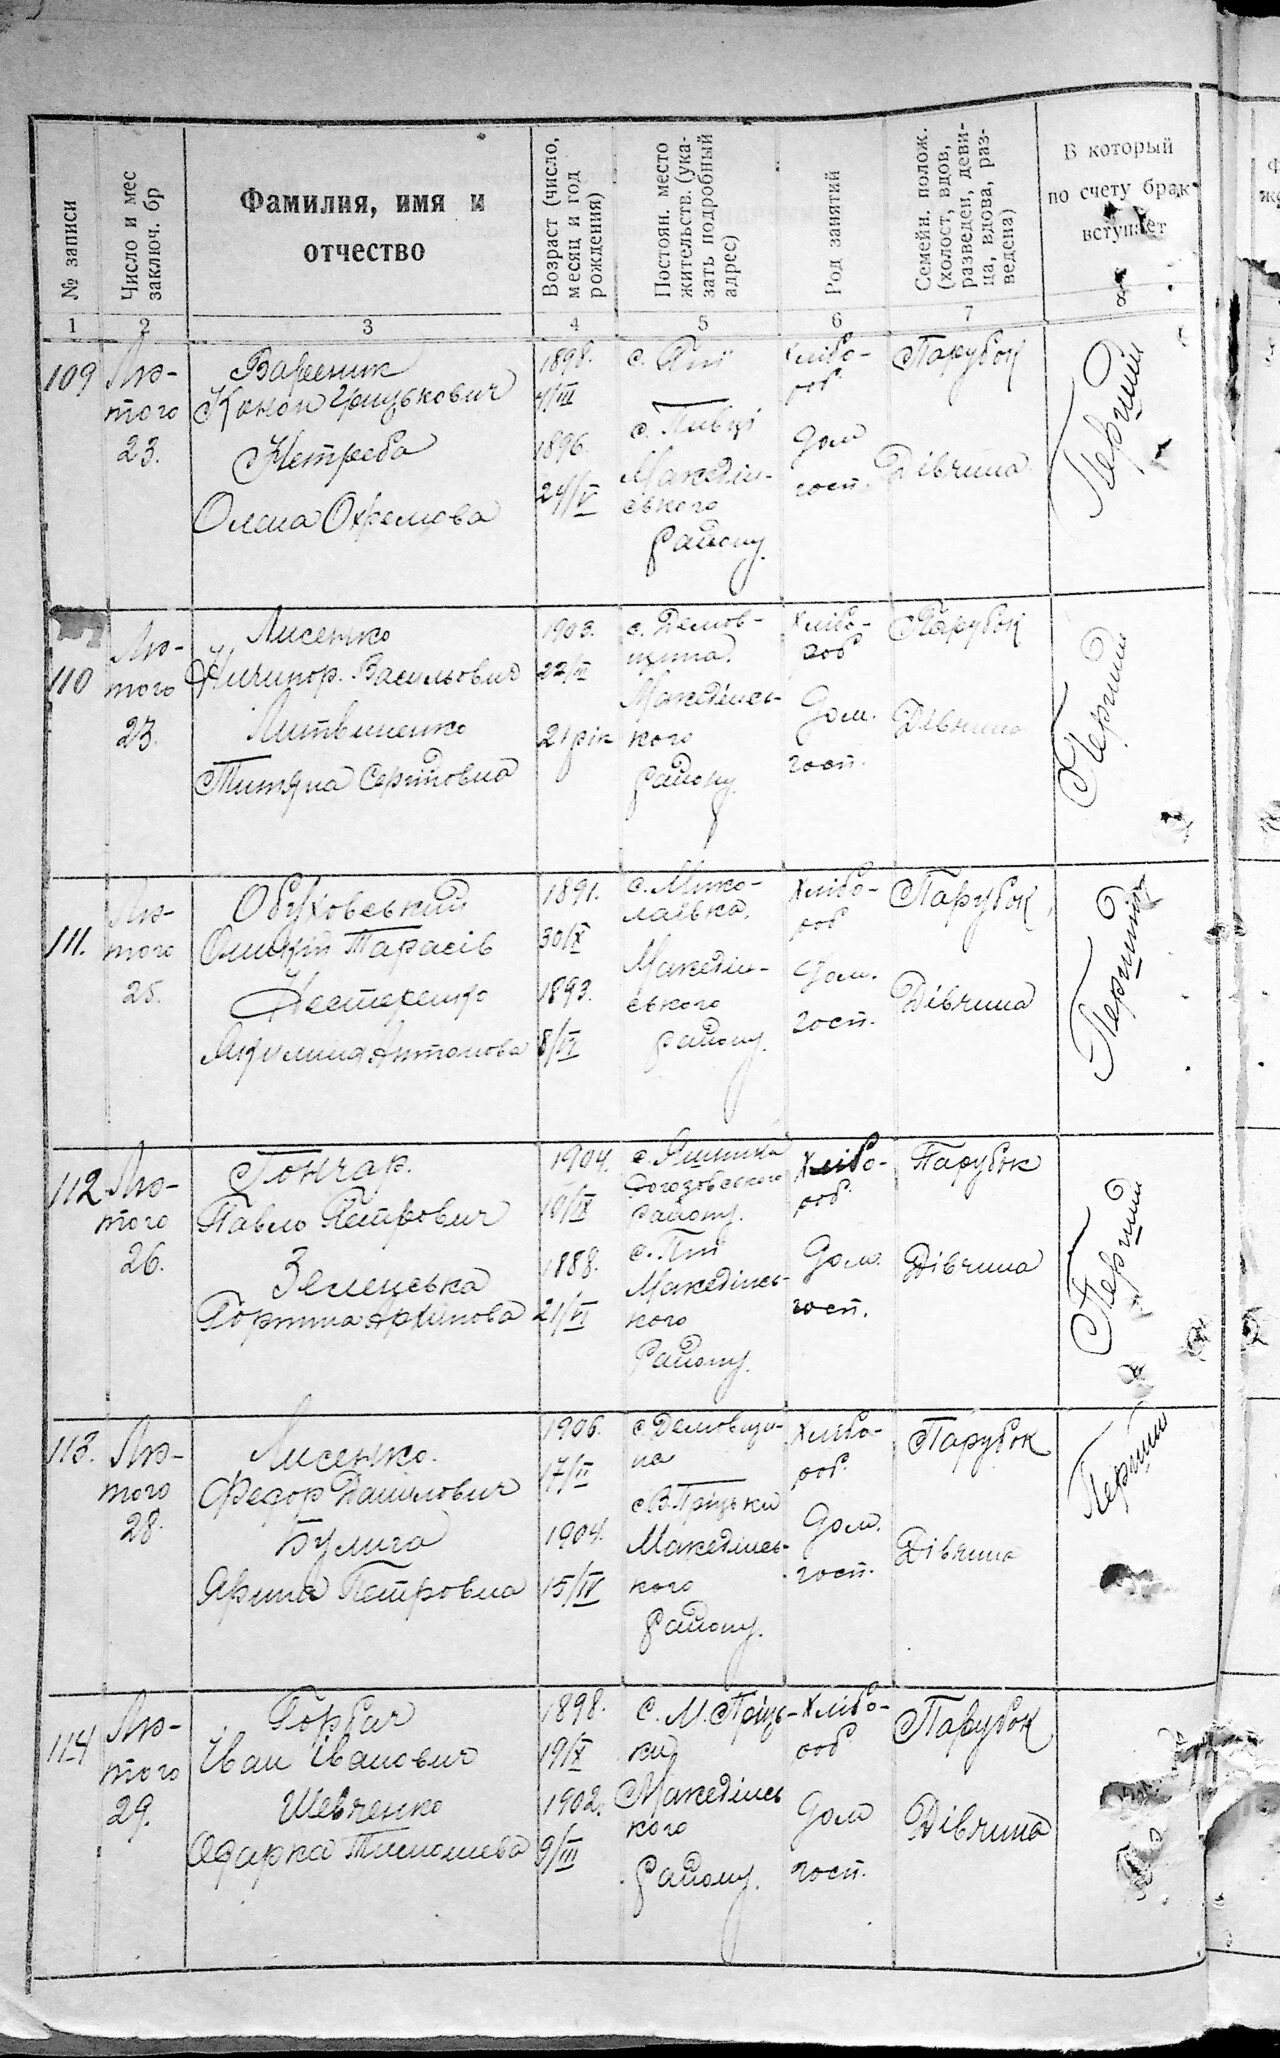 № записи
Число и мес
заключ. бр
Фамилия, имя и
отчество
Возраст (число,
месяц и год
рождения)
Постоян. место
жительств. (ука-
зать подробный
адрес)
Род занятий
Семейн. полож.
(холост, вдов,
разведен, деви-
ца, вдова, раз-
ведена)
В который
по счету брак
вступает
1 2 3 4 5 6 7 8
109
Лю-
того
23.
Вареник
Конон Грицькович
Нетреба
Олена Охремова
1898.
4/III
1896.
24/V
с. Пії
с. Пивці
Македін-
ського
району.
хлібо-
роб
Дом
госп.
Парубок
Дівчина
Перший
110
Лю-
того
23.
Лисенко
Ничипор. Васильович
Литвиненко
Титяна Сергіївна
1903.
22/II
21 рік
с. Демов-
щина.
Македінсь-
кого
району.
Хлібо-
роб
Дом.
госп.
Парубок
Дівчина
Перший
111.
Лю-
того
25.
Обуховський
Оникій Тарасів
Нестеренко
Якулина Антонова
1891.
30/IX
1893.
8/VI
с. Мико-
лаївка,
Македін-
ського
району.
Хлібо-
роб
Дом.
госп.
Парубок
Дівчина
Перший
112
Лю-
того
26.
Гончар.
Павло Петрович
Зеленська
Горпина Архипова
1904.
10/IX
1888.
21/VI
району.
с. Пії
Македінсь-
кого
району.
Хлібо-
роб.
Дом.
госп.
Парубок
Дівчина
Перший
113.
Лю-
того
28.
Лисенко.
Федор Данилович
Булига
Ярина Петровна
1906.
17/II
1904.
15/IV
с. Демовщи-
на
с. В. Пріцьки
Македінсь-
кого
району.
Хлібо-
роб.
Дом.
госп.
Парубок
Дівчина
Перший
114
Лю-
того
29.
Горбач
Іван Іванович
Шевченко
Одарка Тимошева
1898.
19/IX
1902.
9/III
с. М. Пріць-
ки
Македінсь
кого
району.
Хлібо-
роб
Дом
госп.
Парубок
Дівчина